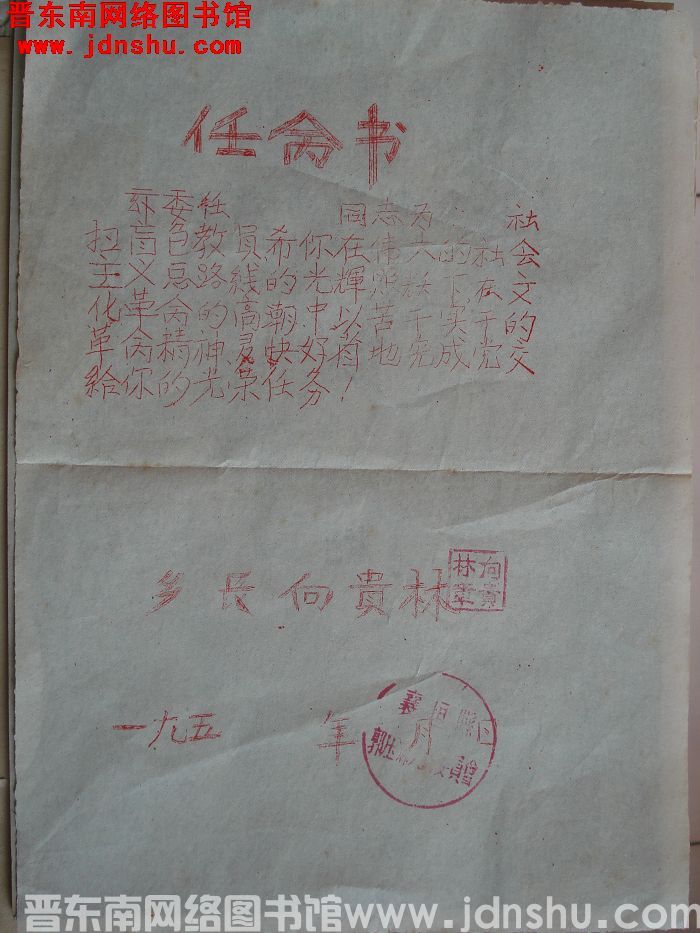 晋东南网络图书馆
www.jdnshu.com
任命书
兹委任 同志为 社
扫盲色教員希你在伟大的社会
主义总路线的光輝照耀下在文
化革命的高潮中以苦干实干的
革命精神灵快好省地完成党交
給你的光荣任务!
乡长向貴林
向貴林章
一九五 年 月 日
襄垣縣
晋东南网络图书馆www.jdnshu.com